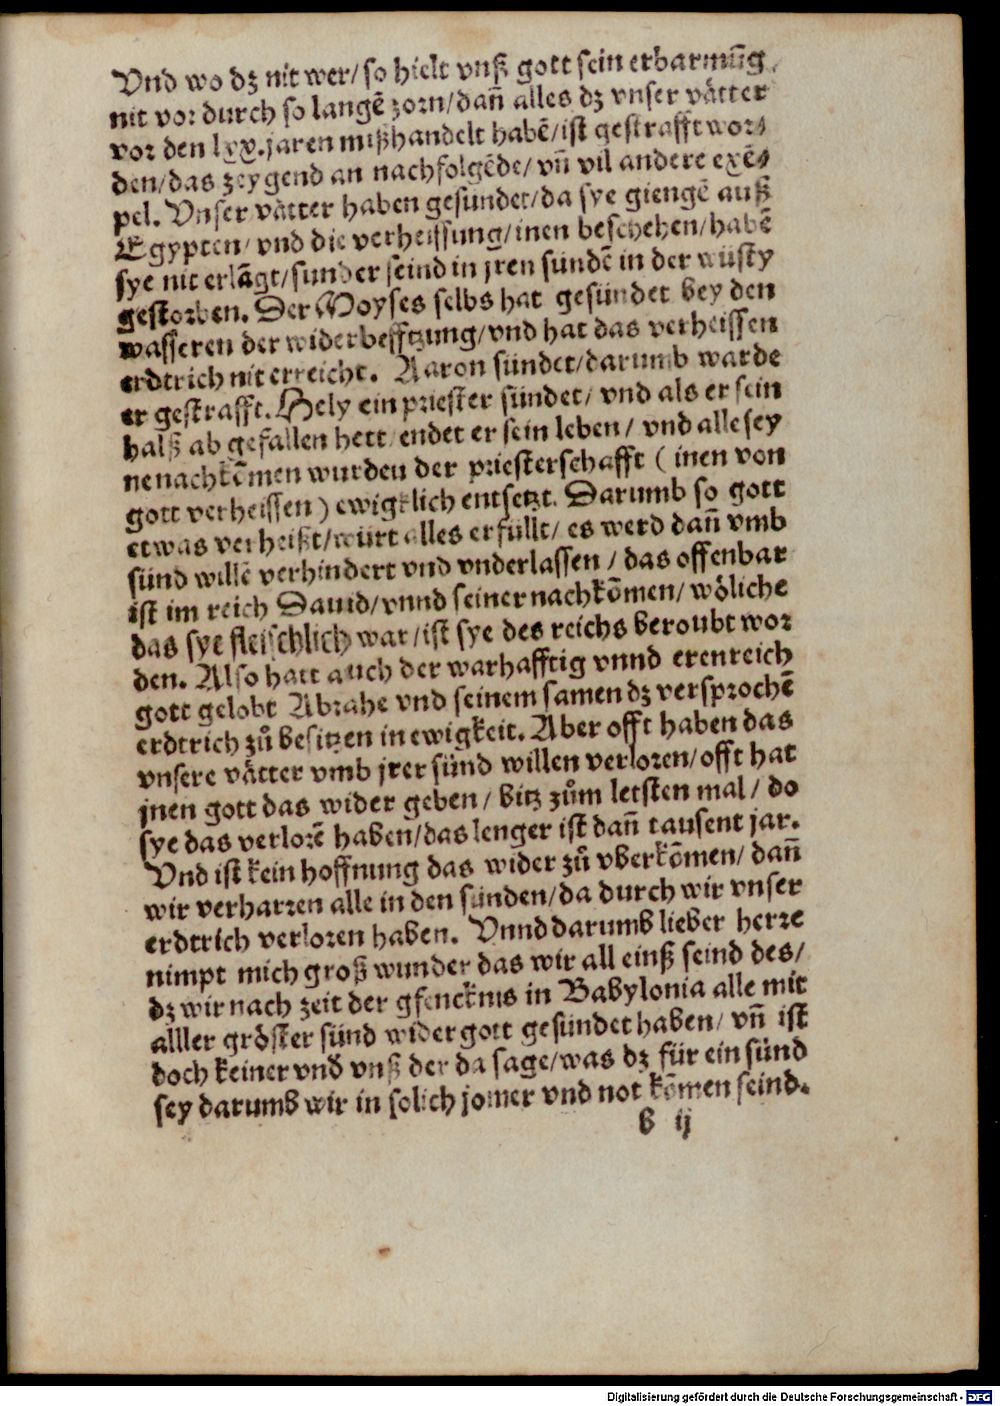 Vnd wo dz nit wer/ so hielt vnß gott sein erbarmūg
nit vor durch so langē zorn/ dañ alles dz vnser vätter
vor den lxx. jaren mißhandelt habē/ ist gestrafft wor⸗
den/ das zeygend an nachfolgēde/ vñ vil andere exē⸗
pel. Vnser vätter haben gesündet/ da sye giengē auß
Egypten/ vnd die verheissung/ inen beschehen/ habē
sye nit erlāgt/ sunder seind in jren sündē in der wüsty
gestorben. Der Moyses selbs hat gesündet bey den
wasseren der widerbefftzung/ vnd hat das verheissen
erdtrich nit erreicht. Aaron sündet/ darumb warde
er gestrafft. Hely ein priester sündet/ vnd als er sein
halß ab gefallen hett/ endet er sein leben/ vnd alle sey
ne nachkōmen wurden der priesterschafft ( inen von
gott verheissen ) ewigklich entsetzt. Darumb so gott
etwas verheißt/ würt alles erfüllt/ es werd dañ vmb
sünd willē verhindert vnd vnderlassen / das offenbar
ist im reich Dauid/ vnnd seiner nachkōmen/ wöliche
das sye fleischlich war/ ist sye des reichs beroubt wor
den. Also hatt auch der warhafftig vnnd erenreich
gott gelobt Abrahe vnd seinem samen dz versprochē
erdtrich zů besitzen in ewigkeit. Aber offt haben das
vnsere vätter vmb jrer sünd willen verloren/ offt hat
jnen gott das wider geben / bitz zům letsten mal / do
sye das verlorē haben/ das lenger ist dañ tausent jar.
Vnd ist kein hoffnung das wider zů vberkōmen/ dañ
wir verharren alle in den sünden/ da durch wir vnser
erdtrich verloren haben. Vnnd darumb lieber herre
nimpt mich groß wunder das wir all einß seind des/
dz wir nach zeit der gfencknis in Babylonia alle mit
alller gröster sünd wider gott gesündet haben/ vñ ist
doch keiner vnd vnß der da sage/ was dz für ein sünd
sey darumb wir in solich jomer vnd not kōmen seind.
b ij
Digitalisierung gefördert durch die Deutsche Forschungsgemeinschaft - DFG